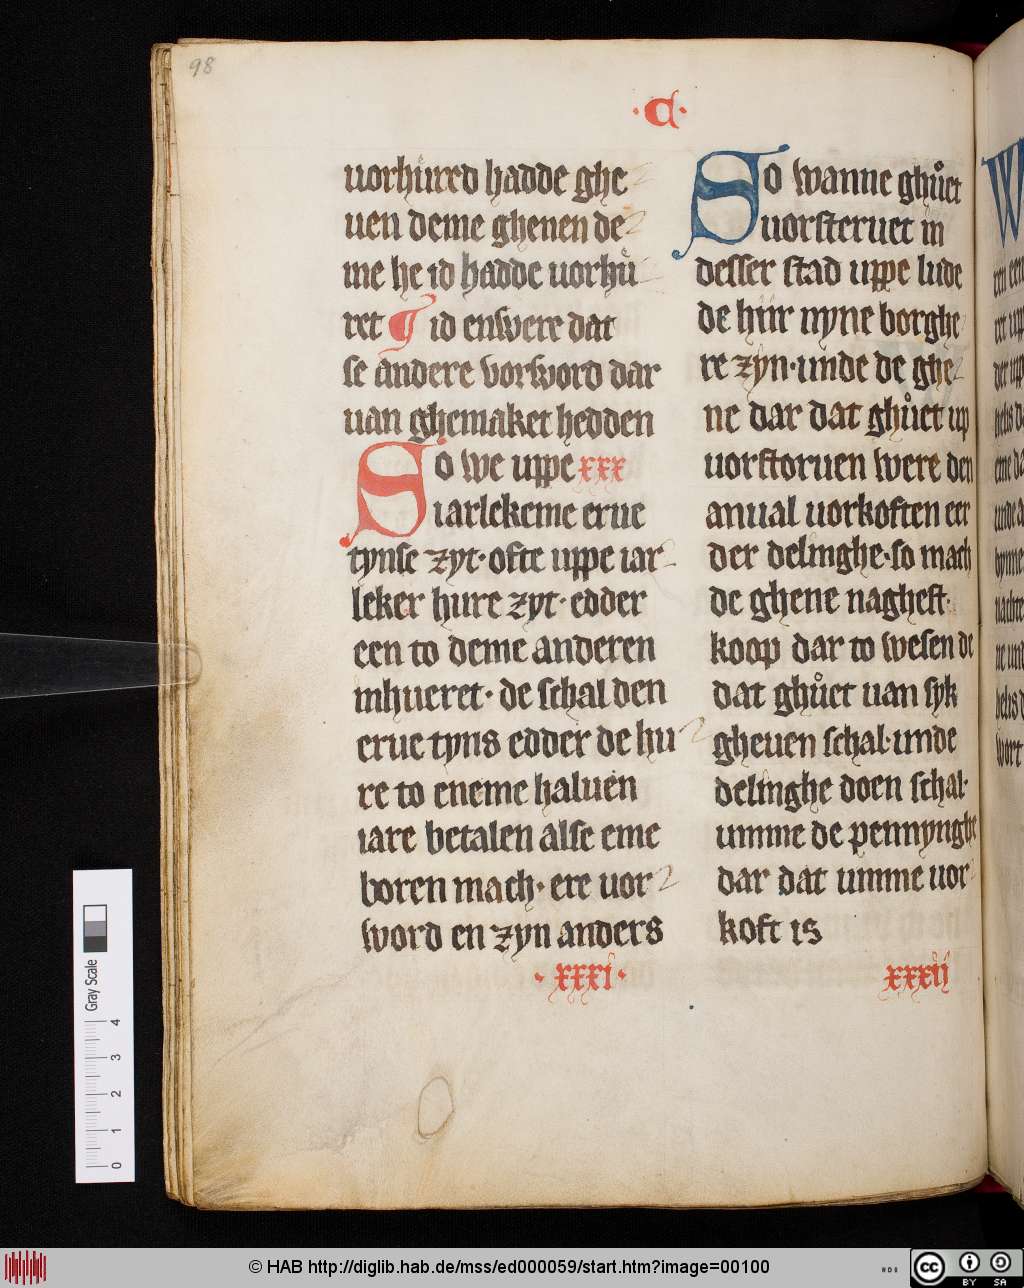 98
·C·
uorhüred hadde ghe
uen deme ghenen de
me he id hadde uorhů
ret ¶ id enwere dat
se andere vorword dar
uan ghemaket hedden
So we uppe xxx
iarlekeme erue
tynse zyt· ofte uppe iar
leker hure zyt· edder
een to deme anderen
inhueret· de schal den
erue tyns edder de hu
re to eneme haluen
iare betalen alse eme
boren mach· ere uor
word en zyn anders
·xxxi·
So wanne ghůet
uorsteruet in
desser stad uppe lude
de hiir nyne borghe
re zyn·unde de ghe
ne dar dat ghůet up
uorstoruen were den
anual uorkoften eer
der delinghe·so mach
de ghene naghest·
koop dar to wesen de
dat ghůet uan syk
gheuen schal·unde
delinghe doen schal·
umme de pennynghe
dar dat umme uor
koft is
xxxii
Gray Scale
0 1 2 3 4
© HAB http://diglib.hab.de/mss/ed000059/start.htm?image=00100
cc BY SA